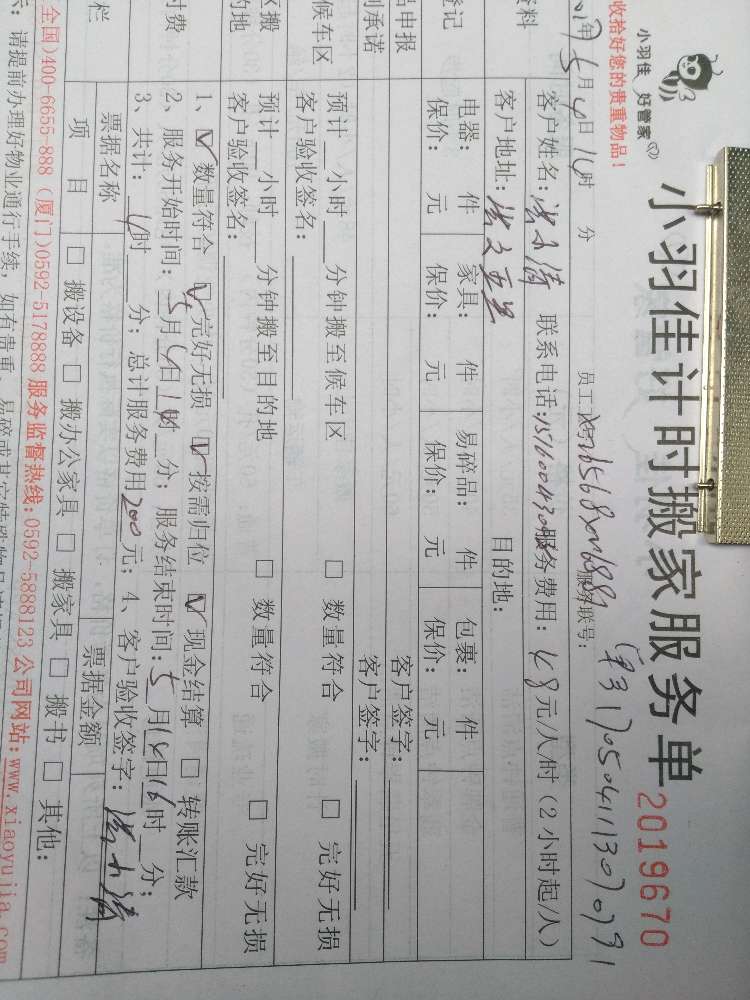 小羽佳 好管家
收拾好您的贵重物品！
小羽佳计时搬家服务单
2019670
年5月4日14时 分 员工
服务联号：
客户姓名： 联系电话： 服务费用：48元/人/时（2小时起/人）
客户地址： 目的地：
登记
电器： 件 家具： 件 易碎品： 件 包裹： 件
保价： 元 保价： 元 保价： 元 保价： 元
品申报 客户签字：
别承诺 客户签字：
候车区
预计 小时 分钟搬至候车区 □ 数量符合 □ 完好无损
客户验收签名：
区搬
的地
预计 小时 分钟搬至目的地 □ 数量符合 □ 完好无损
客户验收签名：
付费
1、☑ 数量符合 ☑ 完好无损 ☑ 按需归位 ☑ 现金结算 □ 转账汇款
2、服务开始时间：5月4日14时 分；服务结束时间：5月4日16时 分；
3、共计：4时 分；总计服务费用200元；4、客户验收签字：
栏
票据名称 票据金额
项 目 □ 搬设备 □ 搬办公家具 □ 搬家具 □ 搬书 □ 其他：
全国)400-6655-888 (厦门)0592-5178888 服务监督热线:0592-5888123 公司网站:www.xiaoyujia.com
示：请提前办理好物业通行手续，如有贵重、易碎或其它特殊物品请